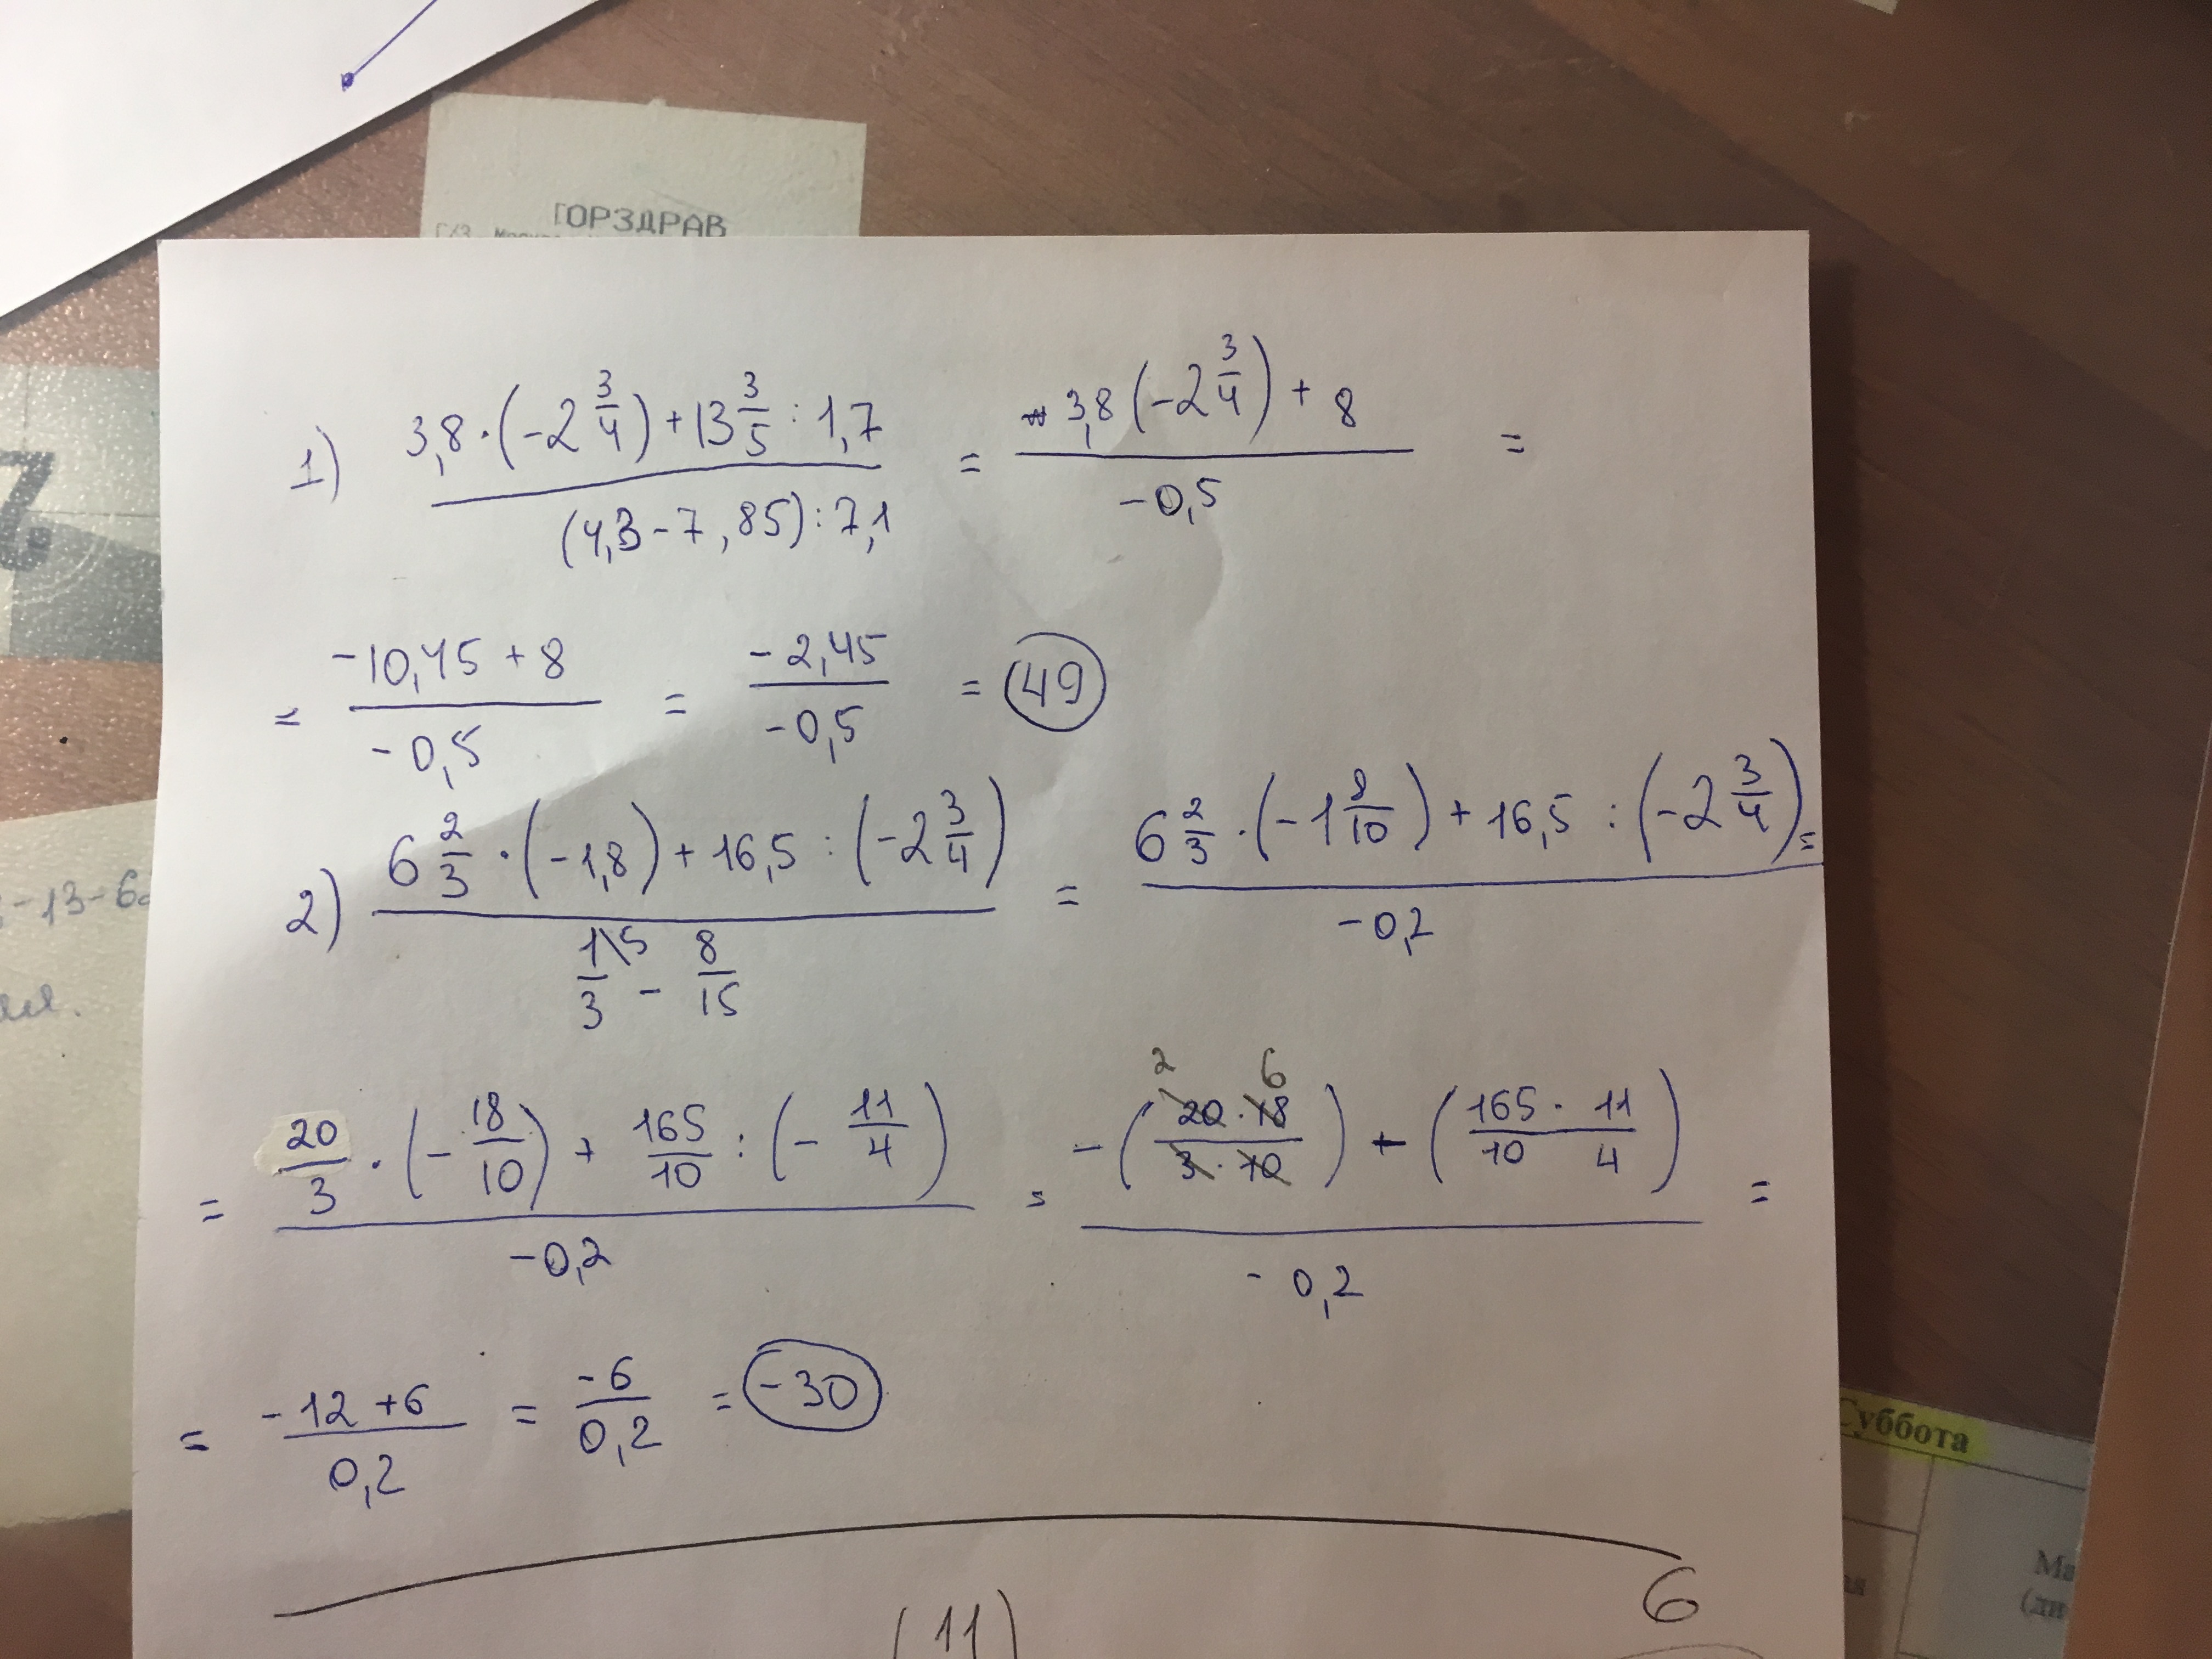 ГОРЗДРАВ
1) (3,8 · (-2 3/4) + 13 3/5 : 1,7) / ((4,3 - 7,85) : 7,1) = (3,8 (-2 3/4) + 8) / (-0,5) =
= (-10,45 + 8) / (-0,5) = (-2,45) / (-0,5) = 49
2) (6 2/3 · (-1,8) + 16,5 : (-2 3/4)) / (1\5/3 - 8/15) = (6 2/3 · (-1 8/10) + 16,5 : (-2 3/4)) / (-0,2) =
-13-6
= (20/3 · (-18/10) + 165/10 : (-11/4)) / (-0,2) = (-(20 · 18 / 3 · 10) + (165 · 11 / 10 4)) / (-0,2) =
2 6
= (-12 + 6) / 0,2 = -6 / 0,2 = -30
Суббота
6
(11)